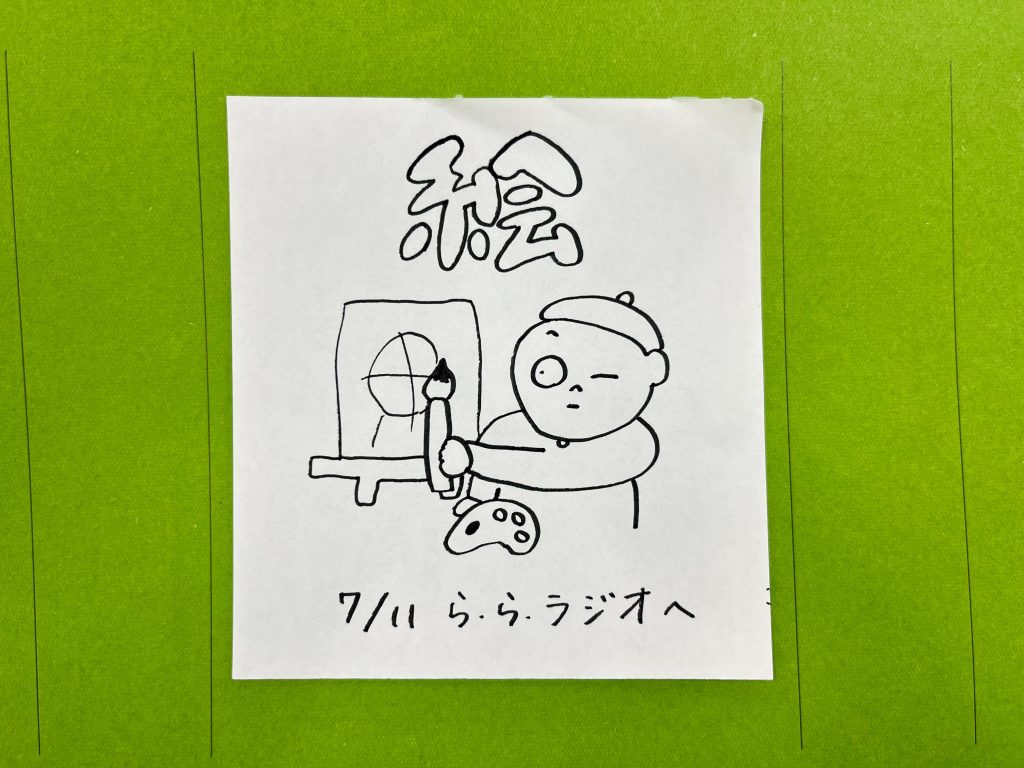 絵
7/11 ら.ら.ラジオへ